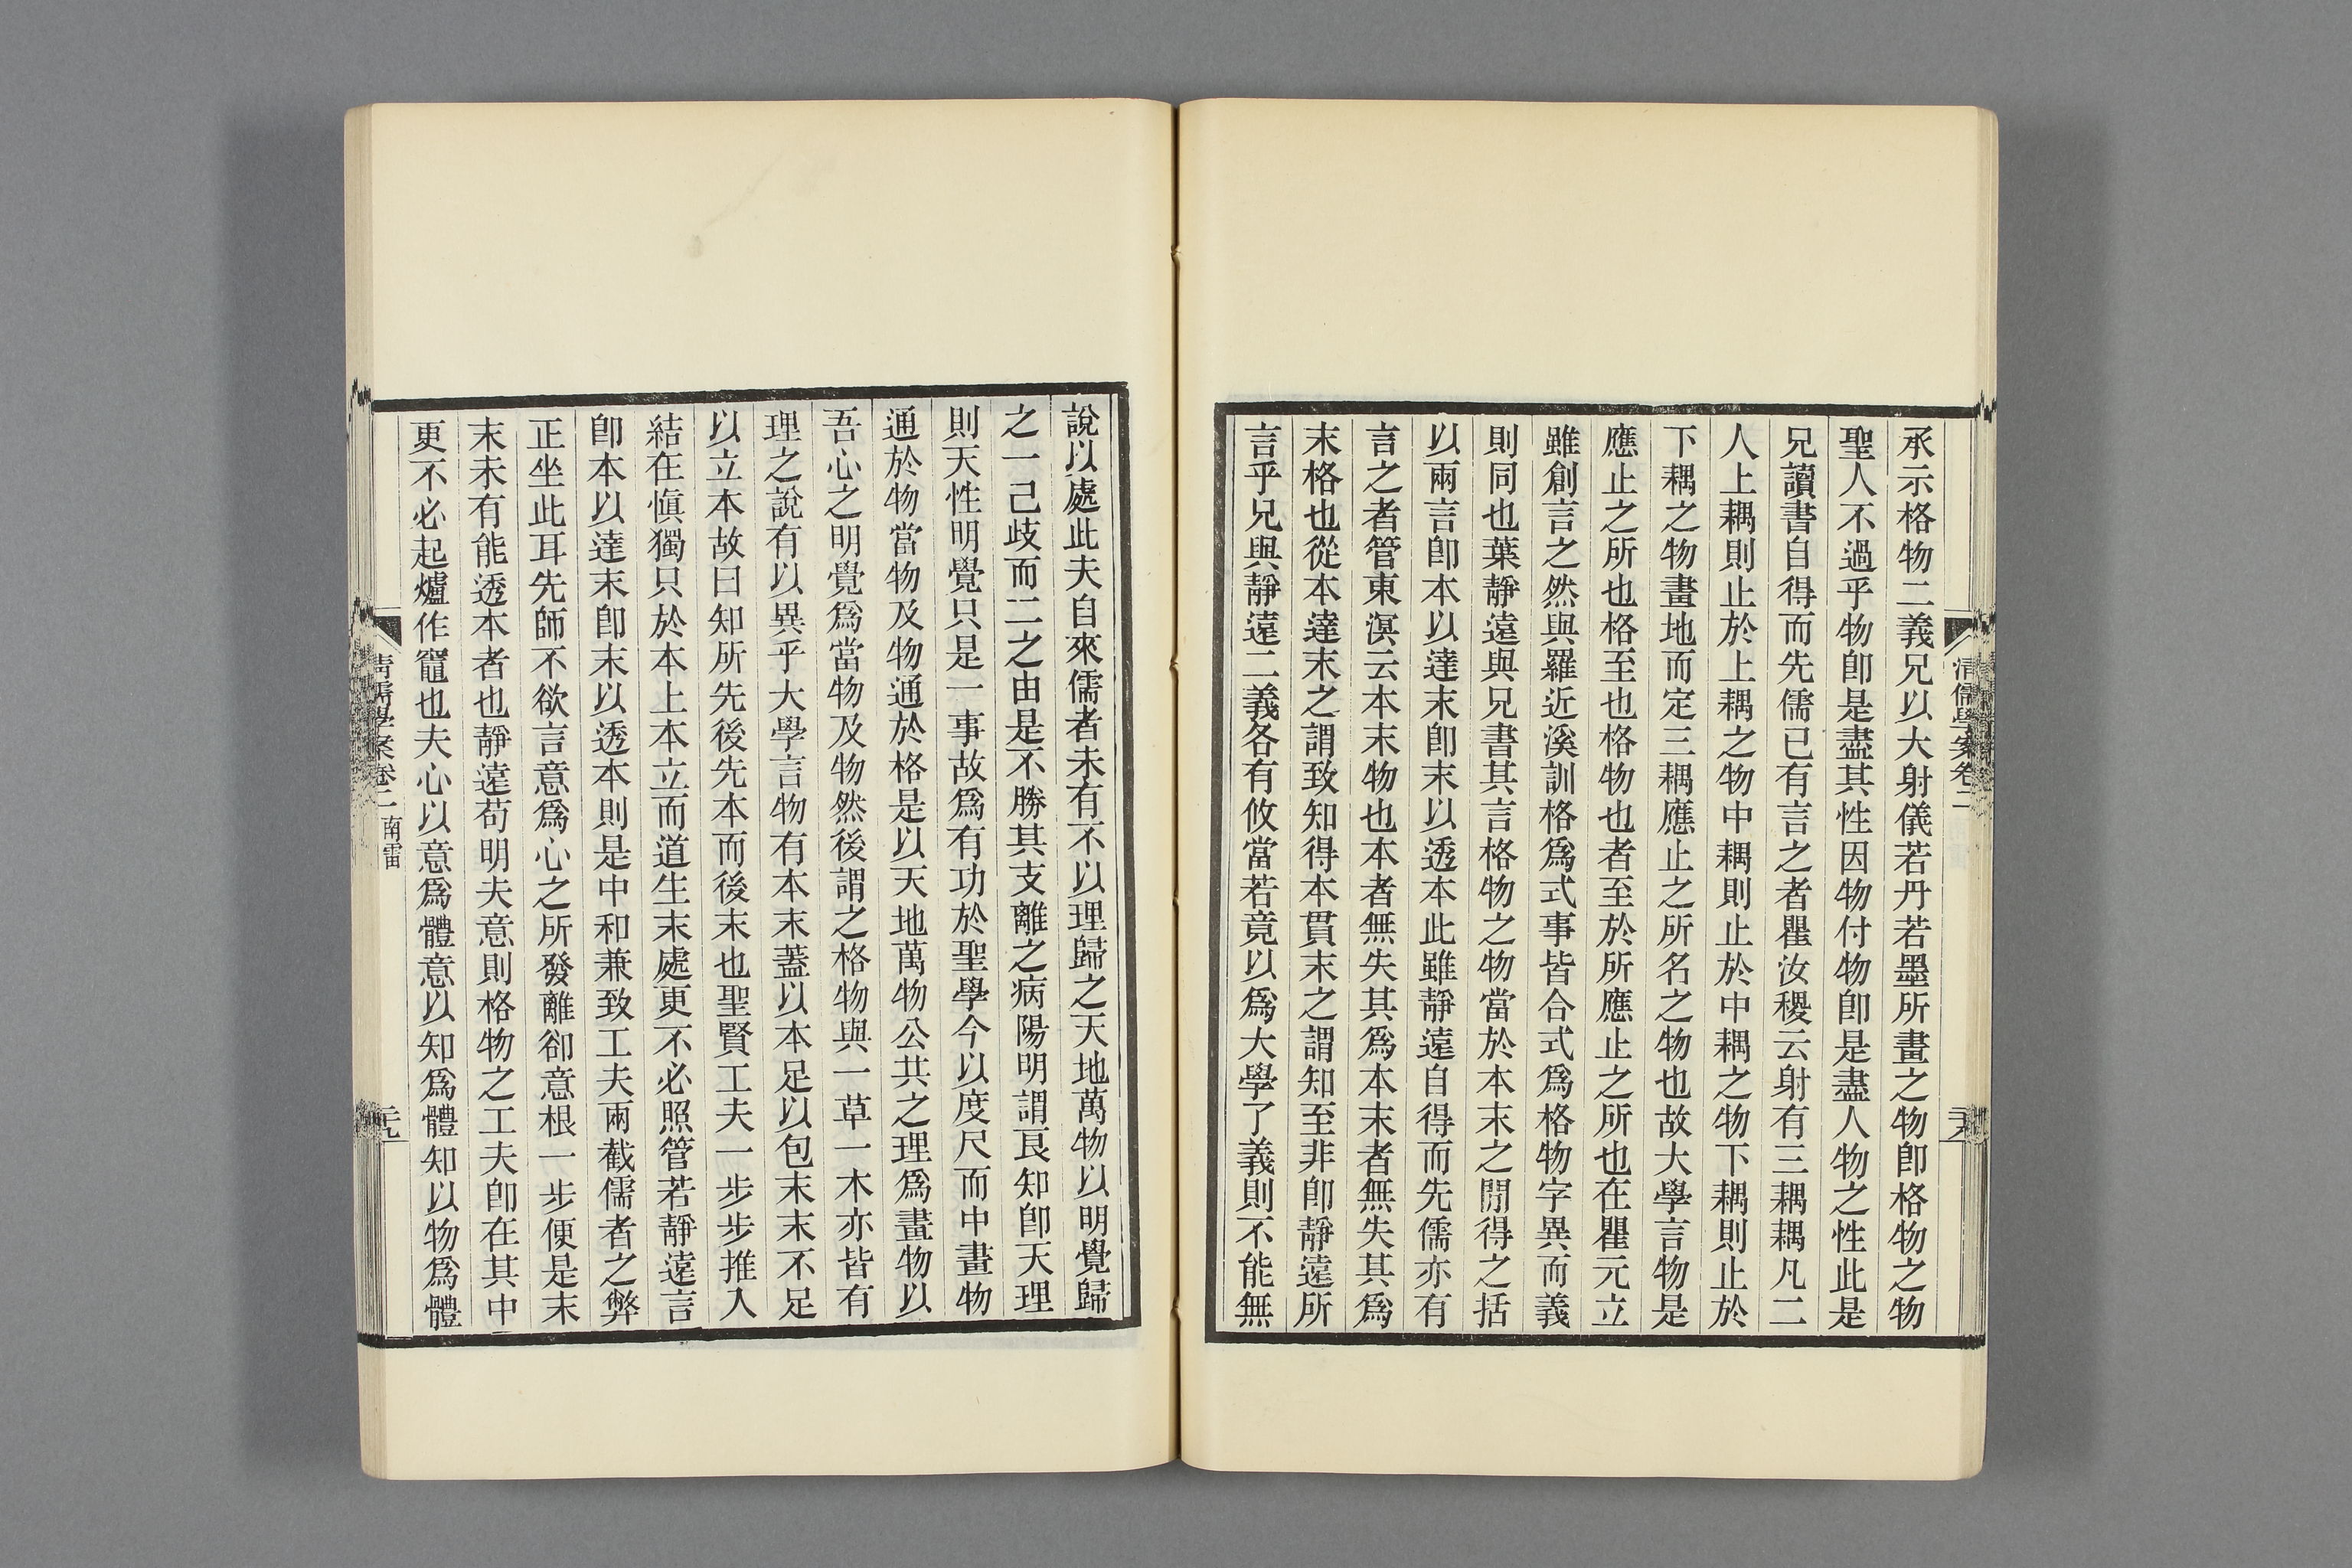 承示格物二義兄以大射儀若丹若墨所畫之物卽格物之物
聖人不過乎物卽是盡其性因物付物卽是盡人物之性此是
兄讀書自得而先儒已有言之者瞿汝稷云射有三耦耦凡二
人上耦則止於上耦之物中耦則止於中耦之物下耦則止於
下耦之物畫地而定三耦應止之所名之物也故大學言物是
應止之所也格至也格物也者至於所應止之所也在瞿元立
雖創言之然與羅近溪訓格爲式事皆合式爲格物字異而義
則同也葉靜遠與兄書其言格物之物當於本末之閒得之括
以兩言卽本以達末卽末以透本此雖靜遠自得而先儒亦有
言之者管東溟云本末物也本者無失其爲本末者無失其爲
末格也從本達末之謂致知得本貫末之謂知至非卽靜遠所
言乎兄與靜遠二義各有攸當若竟以爲大學了義則不能無
清儒學案卷二
三八
說以處此夫自來儒者未有不以理歸之天地萬物以明覺歸
之一己歧而二之由是不勝其支離之病陽明謂良知卽天理
則天性明覺只是一事故爲有功於聖學今以度尺而中畫物
通於物當物及物通於格是以天地萬物公共之理爲畫物以
吾心之明覺爲當物及物然後謂之格物與一草一木亦皆有
理之說有以異乎大學言物有本末蓋以本足以包末末不足
以立本故曰知所先後先本而後末也聖賢工夫一步步推入
結在愼獨只於本上本立而道生末處更不必照管若靜遠言
卽本以達末卽末以透本則是中和兼致工夫兩截儒者之弊
正坐此耳先師不欲言意爲心之所發離卻意根一步便是末
末未有能透本者也靜遠苟明夫意則格物之工夫卽在其中
更不必起爐作竈也夫心以意爲體意以知爲體知以物爲體
清儒學案卷二 南雷
三九